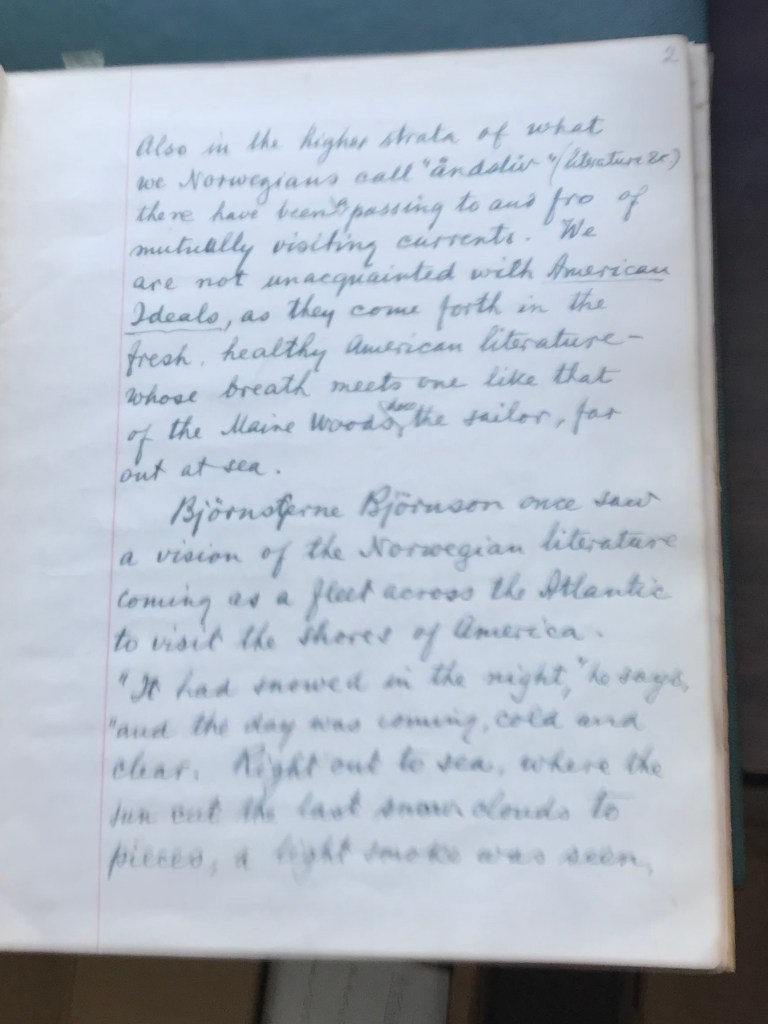 2
Also in the higher strata of what
we Norwegians call "åndsliv" (literature &c)
there have been passing to and fro of
mutually visiting currents. We
are not unacquainted with American
Ideals, as they come forth in the
fresh, healthy American literature –
whose breath meets one like that
of the Maine Woods does the sailor, far
out at sea.
Björnstjerne Björnson once saw
a vision of the Norwegian literature
coming as a fleet across the Atlantic
to visit the shores of America.
"It had snowed in the night," he says,
"and the day was coming, cold and
clear. Right out to sea, where the
sun cut the last snow clouds to
pieces, a light smoke was seen,